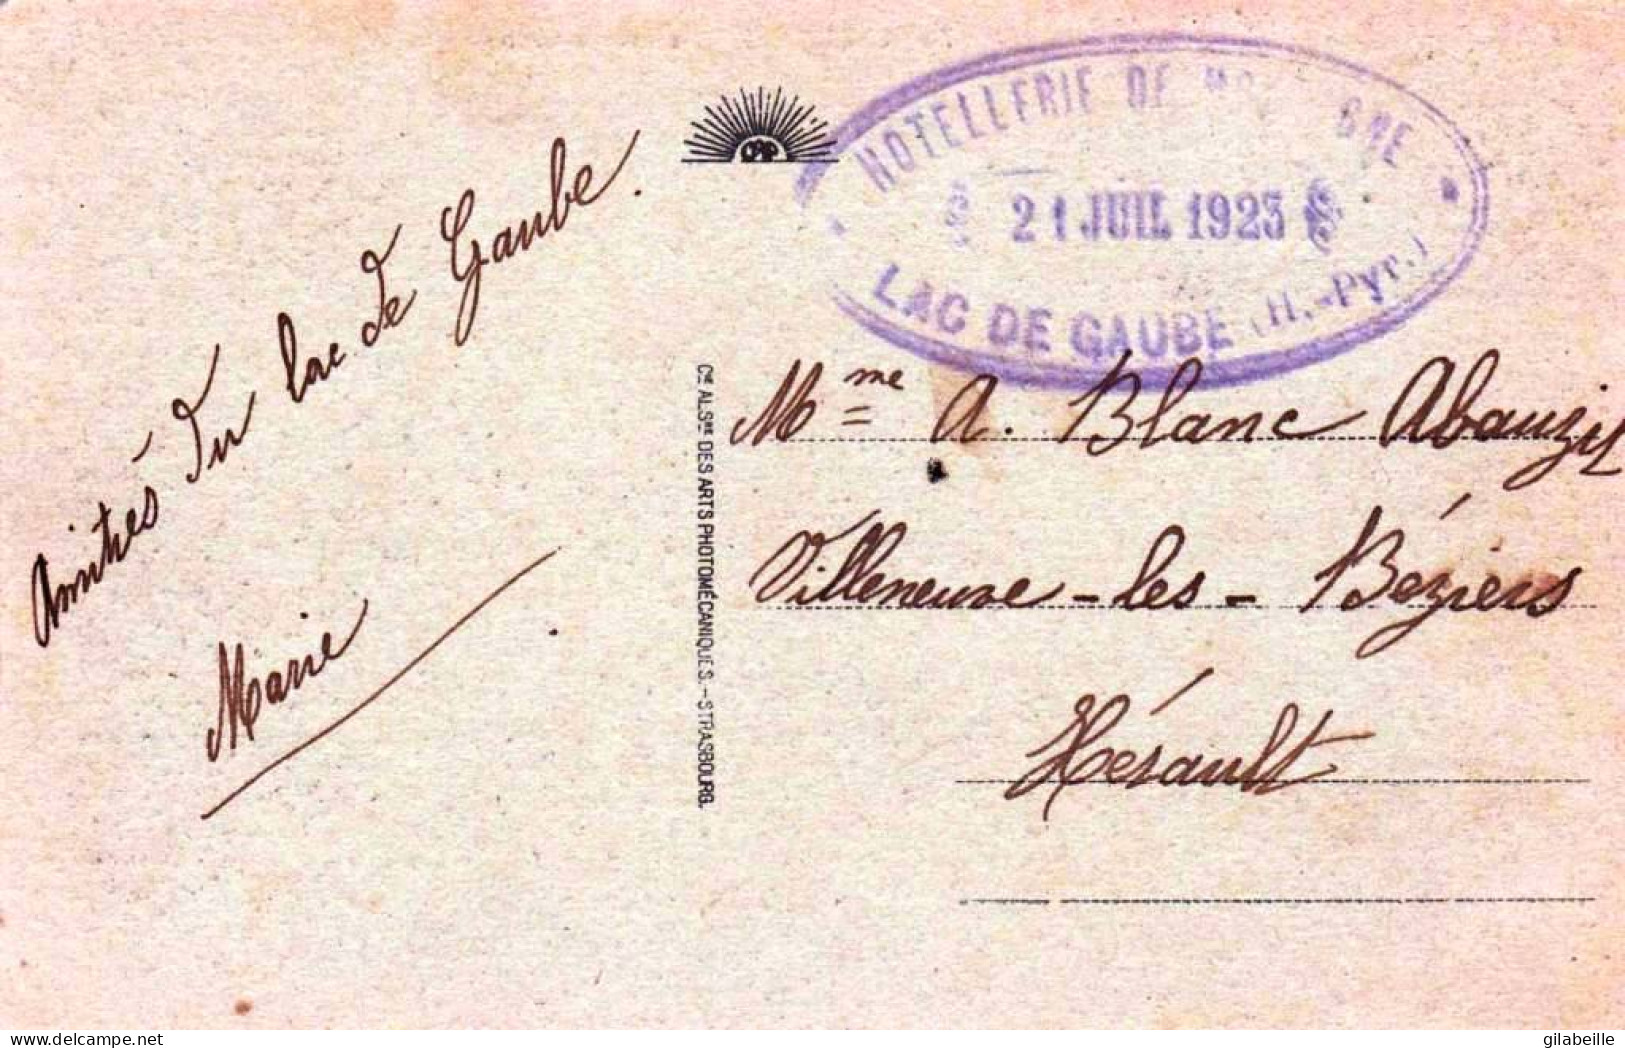 Amitiés du lac de Gaube.
Marie
CAP
HOTELLERIE DE
21 JUIL 1923
LAC DE GAUBE (H.-Pyr.)
Cie ALSne DES ARTS PHOTOMÉCANIQUES. - STRASBOURG.
Mme A. Blanc Abauzit
Villeneuve-les-Béziers
Hérault
delcampe.net
gilabeille